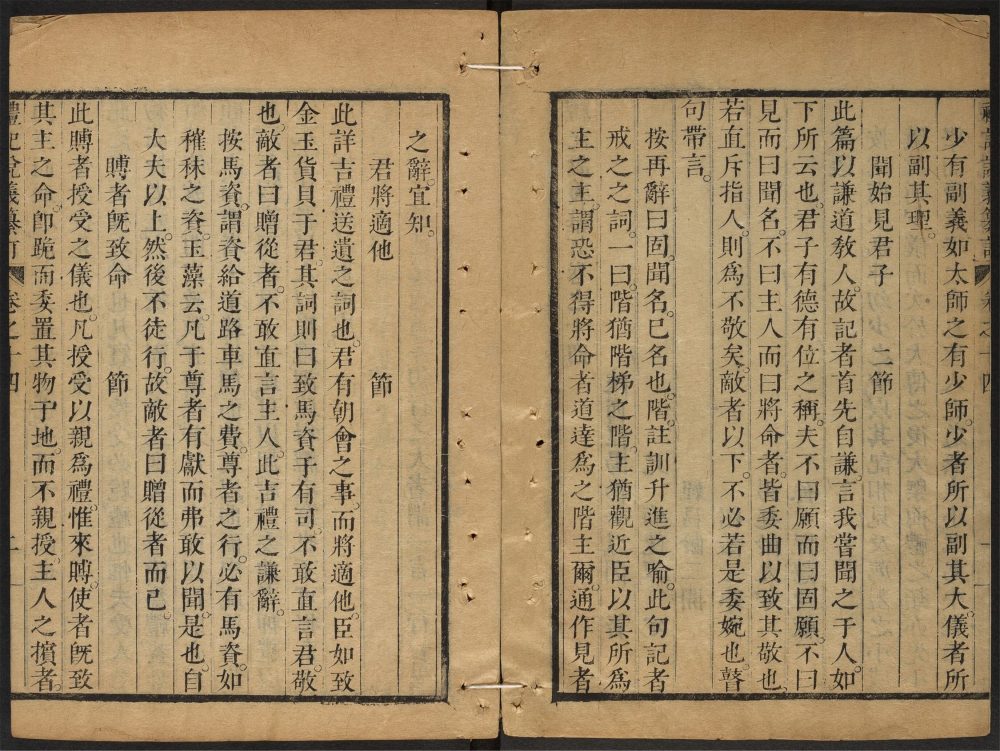 禮記說義纂訂 卷之十四 一
少有副義如太師之有少師。少者所以副其大。儀者所
以副其理。
聞始見君子 二節
此篇以謙道教人。故記者首先自謙。言我嘗聞之于人。如
下所云也。君子有德有位之稱。夫不曰願而曰固願。不曰
見而曰聞名。不曰主人而曰將命者。皆委曲以致其敬也。
若直斥指人。則爲不敬矣。敵者以下。不必若是委婉也。瞽
句帶言。
按再辭曰固。聞名。已名也。階。註訓升進之喻。此句記者
戒之之詞。一曰階猶階梯之階。主猶觀近臣以其所爲
主之主。謂恐不得將命者道達爲之階主爾。適作見者
之辭宜知。
君將適他 節
此詳吉禮送遺之詞也。君有朝會之事。而將適他。臣如致
金玉貨貝于君。其詞則曰致馬資于有司。不敢直言君。敬
也。敵者曰贈從者。不敢直言主人。此吉禮之謙辭。
按馬資。謂資給道路車馬之費。尊者之行。必有馬資。如
穅秣之資。玉藻云。凡于尊者有獻而弗敢以聞。是也。自
大夫以上。然後不徒行。故敵者曰贈從者而已。
賻者旣致命 節
此賻者授受之儀也。凡授受以親爲禮。惟來賻。使者旣致
其主之命。卽跪而委置其物于地。而不親授。主人之擯者。
禮記說義纂訂 卷之十四 二